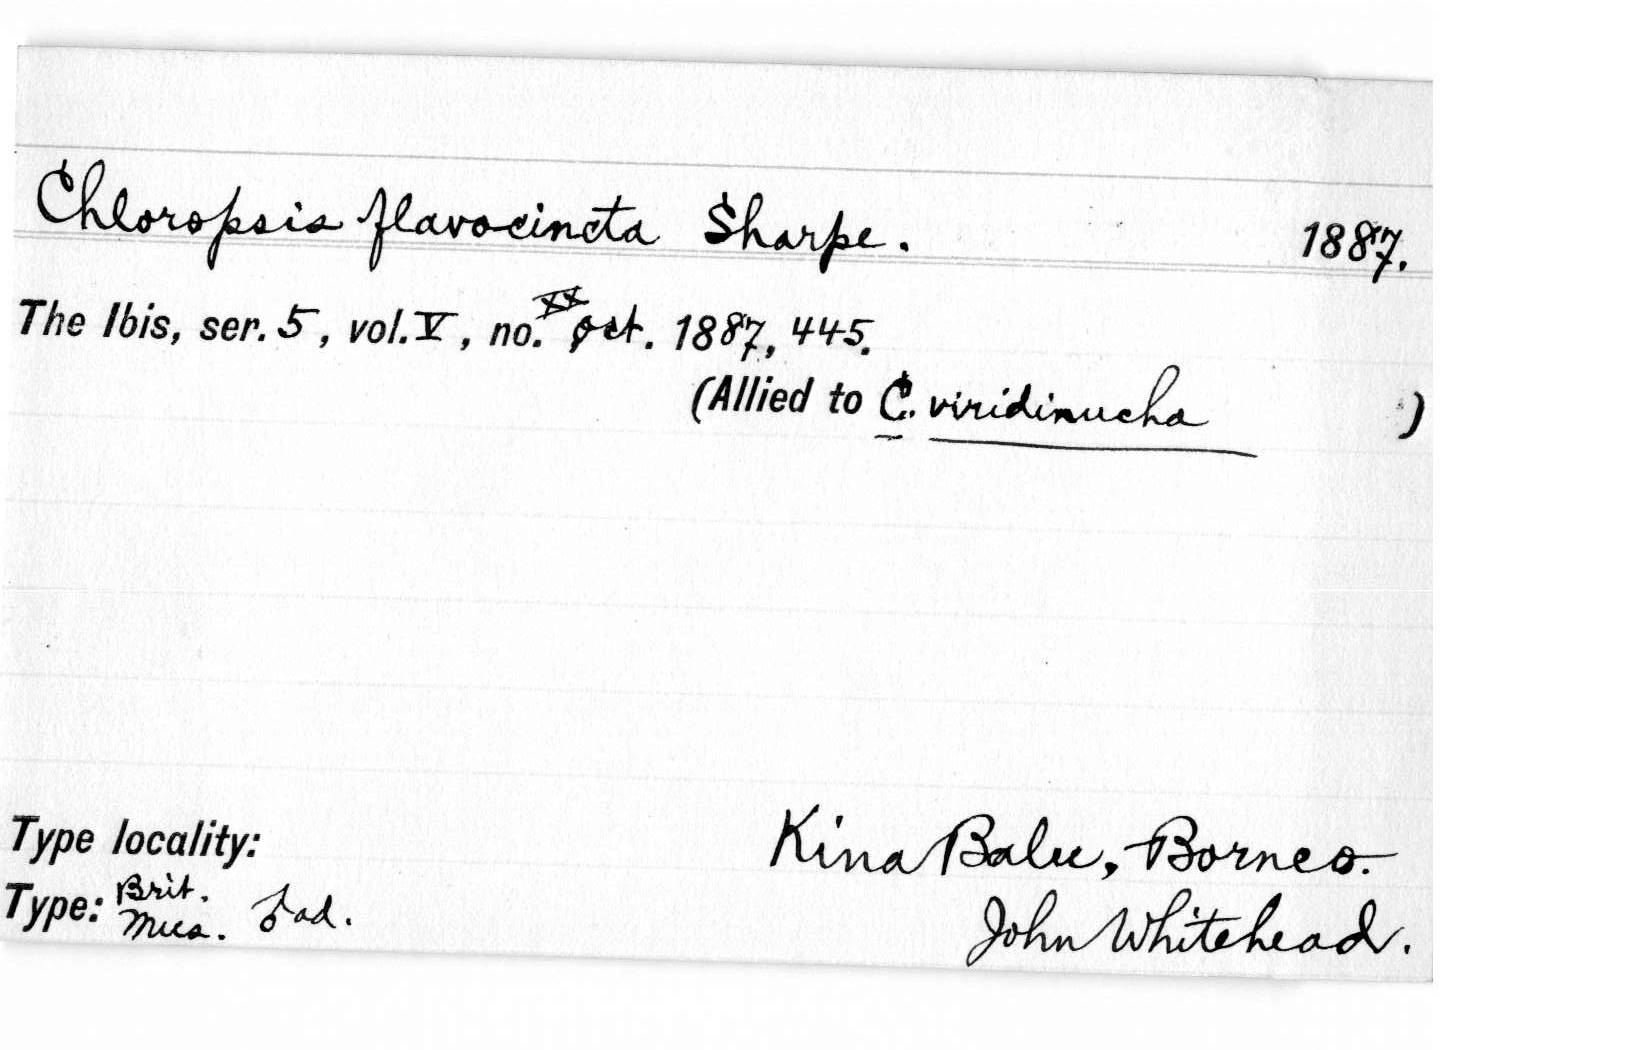 Chloropsis flavocincta Sharpe. 1887.
The Ibis, ser. 5, vol. V, no. XX, Oct. 1887, 445.
(Allied to C. viridinucha )
Type locality: Kina Balu, Borneo.
Type: Brit. Mus. ♂ ad. John Whitehead.